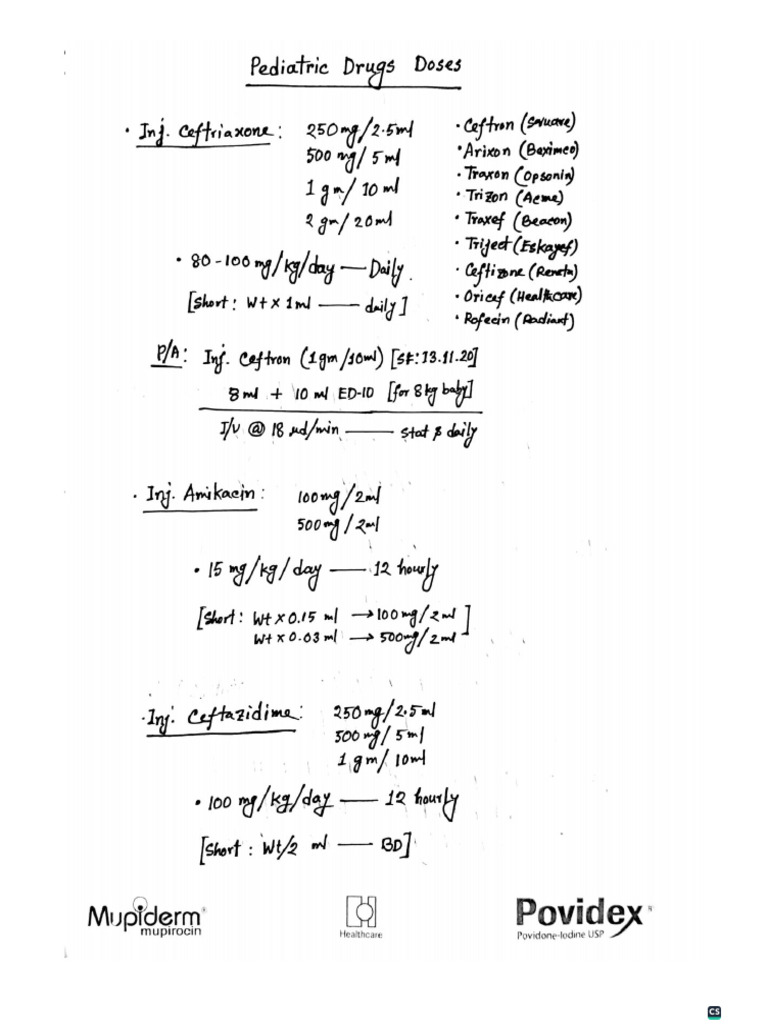 Pediatric Drugs Doses
• Inj. Ceftriaxone: 250mg/2.5ml
500 mg/5 ml
1 gm/10 ml
2 gm/20ml
• Ceftron (Square)
• Arixon (Beximco)
• Traxon (Opsonin)
• Trizon (Acme)
• Traxef (Beacon)
• Triject (Eskayef)
• Ceftizone (Reneta)
• Oricef (Healthcare)
• Rofecin (Radiant)
• 80-100mg/kg/day — Daily.
[Short: Wt x 1ml — daily]
P/A: Inj. Ceftron (1gm/10ml) [St: 13.11.20]
8 ml + 10 ml ED-10 [for 8kg baby]
I/V @ 18 μd/min — stat & daily
• Inj. Amikacin: 100mg/2ml
500mg/2ml
• 15 mg/kg/day — 12 hourly
[Short: Wt x 0.15 ml → 100mg/2ml
Wt x 0.03 ml → 500mg/2ml]
• Inj. Ceftazidime: 250mg/2.5ml
500mg/5ml
1 gm/10ml
• 100 mg/kg/day — 12 hourly
[Short: Wt/2 ml — BD]
Mupiderm
mupirocin
Healthcare
Povidex
Povidone-Iodine USP
CS